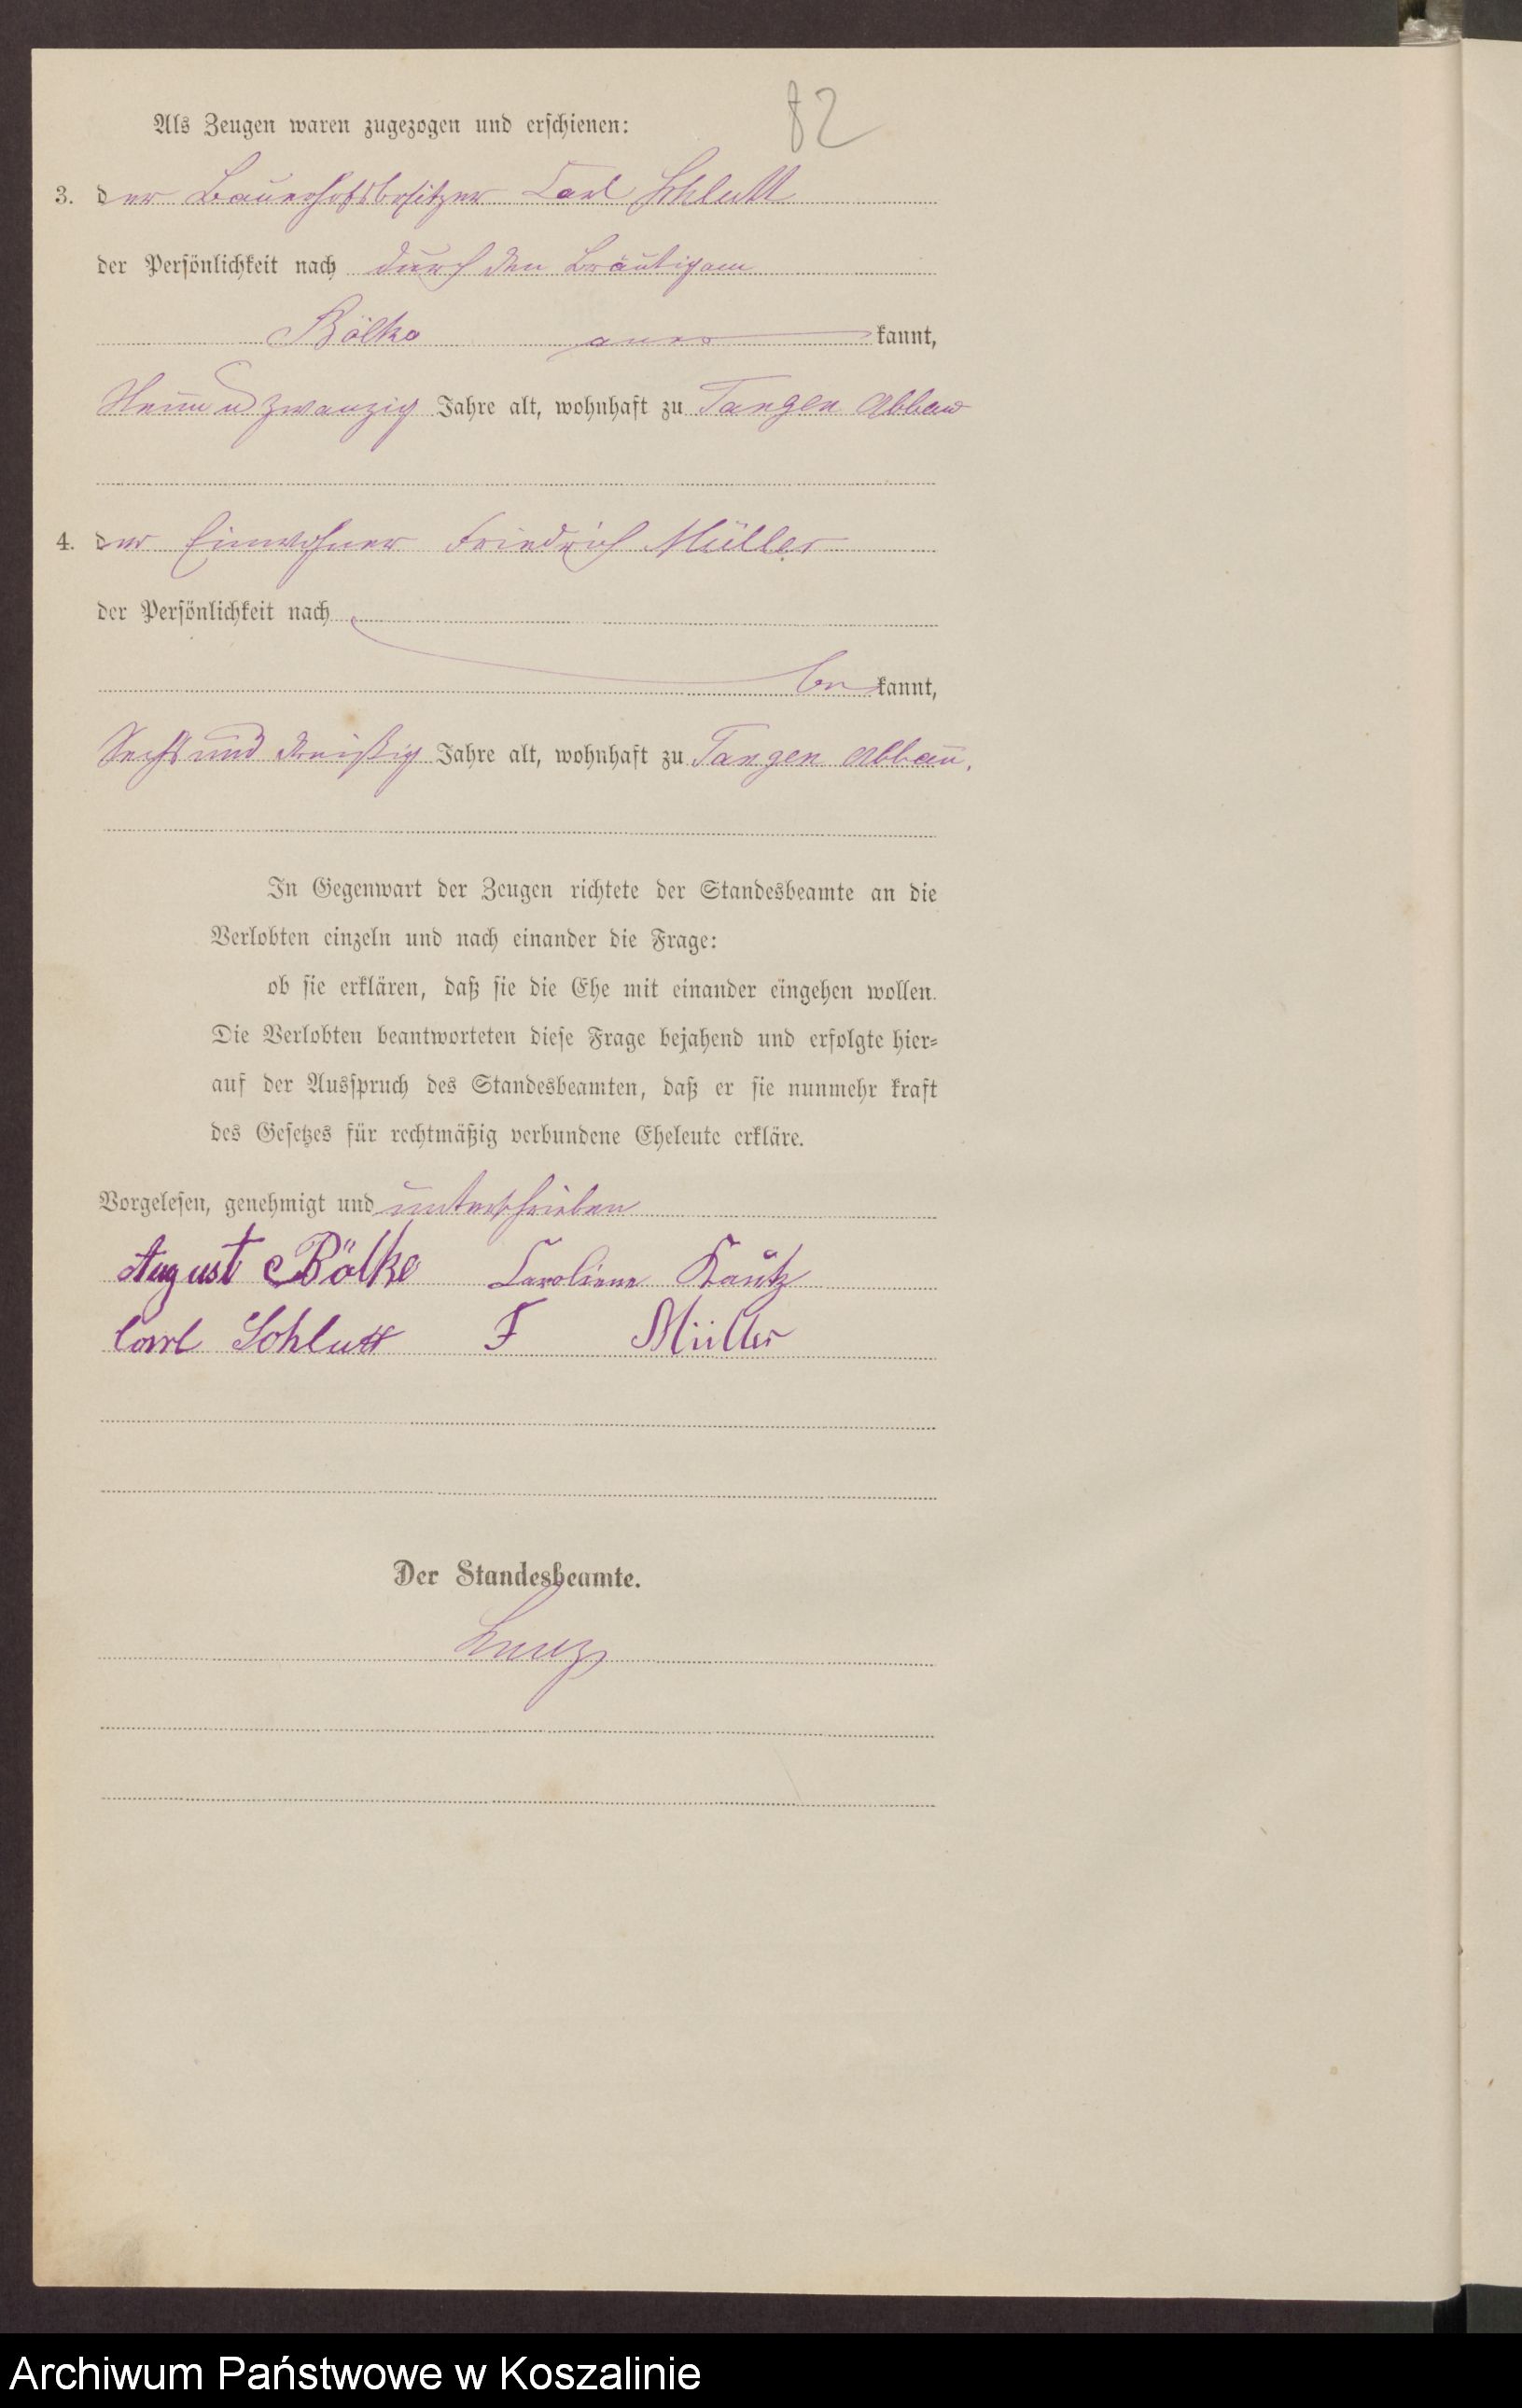 82
Als Zeugen waren zugezogen und erschienen:
3. der Bauerhofsbesitzer Carl Schlutt
der Persönlichkeit nach durch den Bräutigam
Bölke aner kannt,
Neun u zwanzig Jahre alt, wohnhaft zu Tangen Abbau
4. der Einwohner Friedrich Müller
der Persönlichkeit nach
be kannt,
Sechs und dreißig Jahre alt, wohnhaft zu Tangen Abbau.
In Gegenwart der Zeugen richtete der Standesbeamte an die
Verlobten einzeln und nach einander die Frage:
ob sie erklären, daß sie die Ehe mit einander eingehen wollen.
Die Verlobten beantworteten diese Frage bejahend und erfolgte hier-
auf der Ausspruch des Standesbeamten, daß er sie nunmehr kraft
des Gesetzes für rechtmäßig verbundene Eheleute erkläre.
Vorgelesen, genehmigt und unterschrieben
August Bölke Caroliene
Carl Schlutt F Müller
Der Standesbeamte.
Archiwum Państwowe w Koszalinie